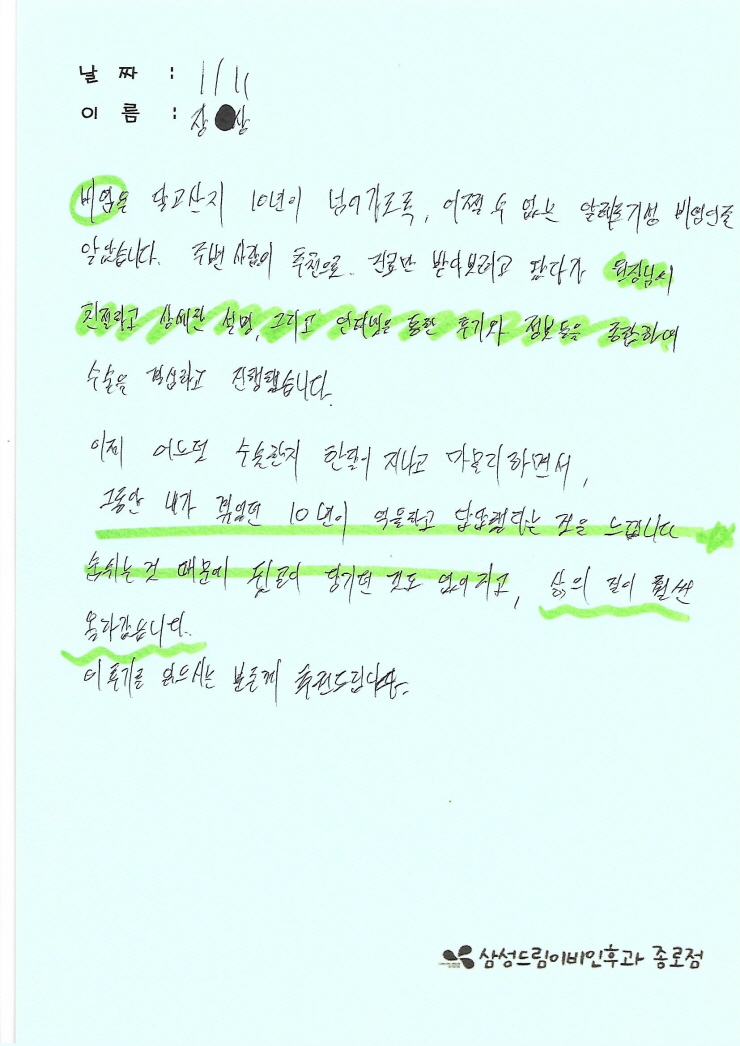 날 짜 : 1/11
이 름 : 장 상
비염을 달고산지 10년이 넘어가도록, 어쩔 수 없는 알레르기성 비염인줄
알았습니다. 주변 사람의 추천으로 진료만 받아보려고 왔다가 원장님의
친절하고 상세한 설명, 그리고 인터넷을 통한 후기와 정보등을 종합하여
수술을 결심하고 진행했습니다.
이제 어느덧 수술한지 한달이 지나고 마무리하면서,
그동안 내가 겪었던 10년이 억울하고 답답했다는 것을 느낍니다
숨쉬는것 때문에 뒷골이 당기던 것도 없어지고, 삶의 질이 훨씬
올라갔습니다.
이 후기를 읽으시는 분들께 추천드립니다.
삼성드림이비인후과 종로점